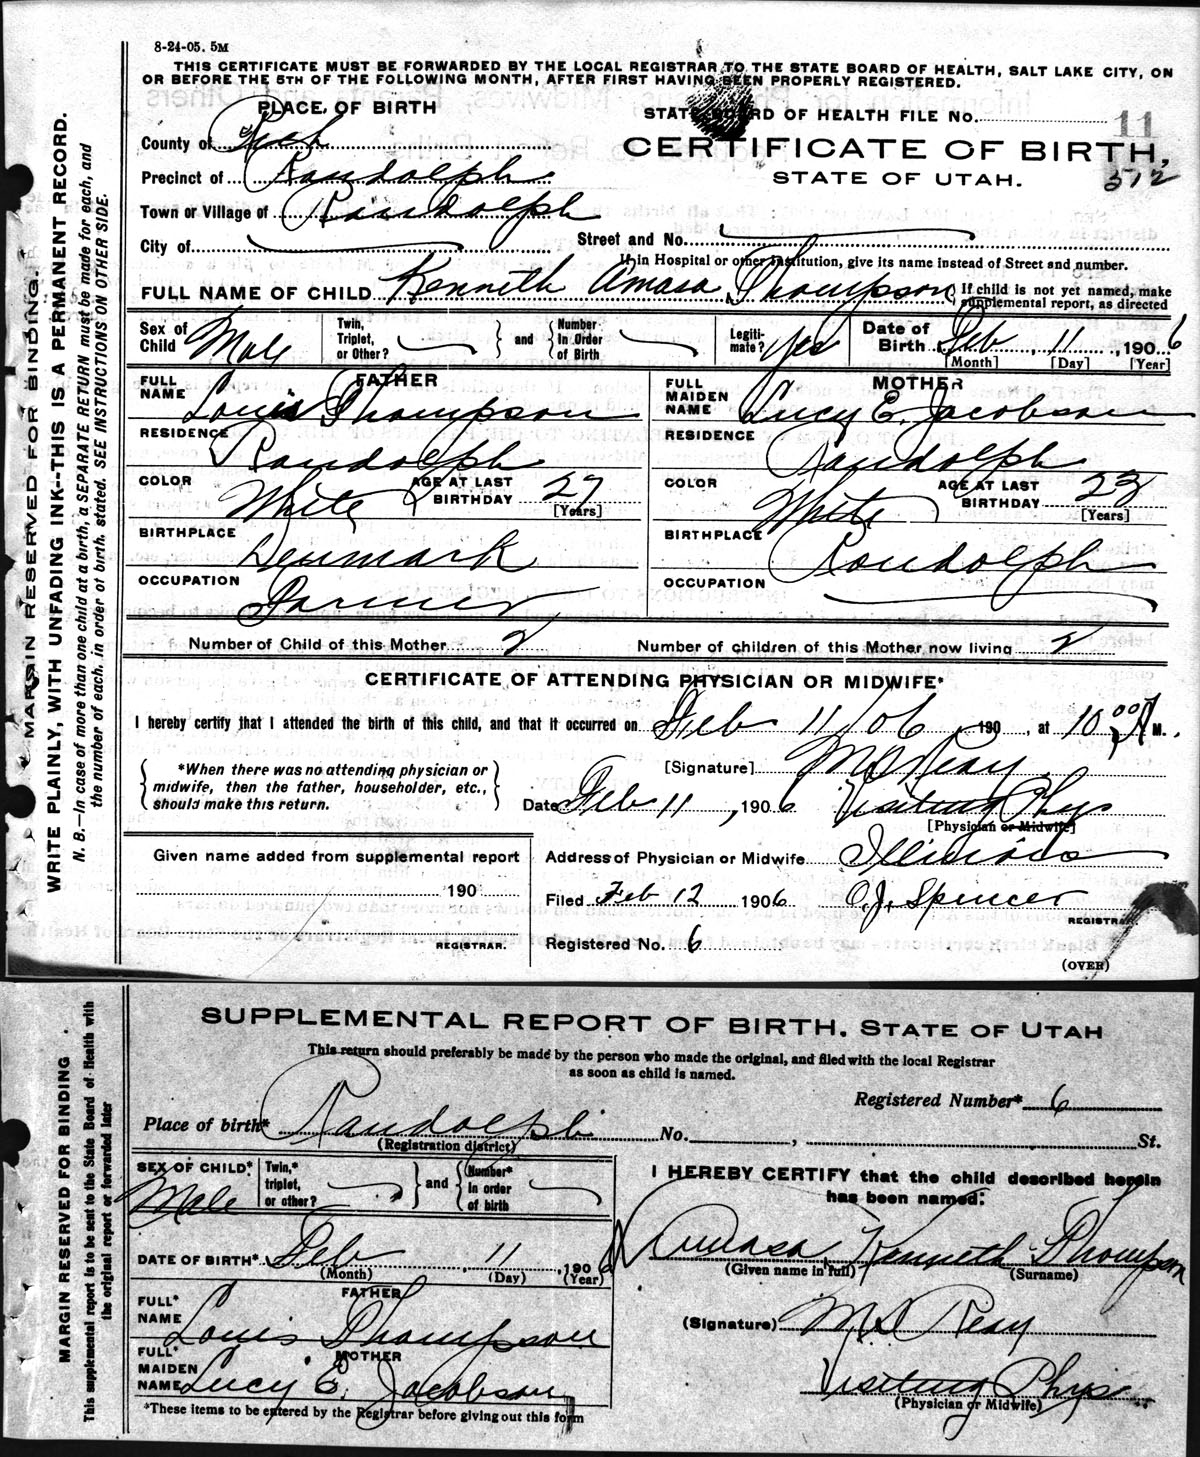 8-24-05. 5M
THIS CERTIFICATE MUST BE FORWARDED BY THE LOCAL REGISTRAR TO THE STATE BOARD OF HEALTH, SALT LAKE CITY, ON
OR BEFORE THE 5TH OF THE FOLLOWING MONTH, AFTER FIRST HAVING BEEN PROPERLY REGISTERED.
PLACE OF BIRTH
STATE BOARD OF HEALTH FILE No. 11
County of Rich
CERTIFICATE OF BIRTH,
Precinct of Randolph
STATE OF UTAH. 512
Town or Village of Randolph
City of Street and No.
If in Hospital or other Institution, give its name instead of Street and number.
FULL NAME OF CHILD Kenneth Amasa Thompson { If child is not yet named, make supplemental report, as directed
Sex of Child Male Twin, Triplet, or Other? } and { Number In Order of Birth Legiti-mate? Yes Date of Birth Feb, 11, 1906
[Month] [Day] [Year]
FATHER MOTHER
FULL NAME Louis Thompson FULL MAIDEN NAME Lucy E. Jacobson
RESIDENCE Randolph RESIDENCE Randolph
COLOR White AGE AT LAST BIRTHDAY 27 [Years] COLOR White AGE AT LAST BIRTHDAY 23 [Years]
BIRTHPLACE Denmark BIRTHPLACE Randolph
OCCUPATION Farmer OCCUPATION
Number of Child of this Mother 2 Number of children of this Mother now living 2
CERTIFICATE OF ATTENDING PHYSICIAN OR MIDWIFE*
I hereby certify that I attended the birth of this child, and that it occurred on Feb 11/06, 190, at 10 00 A M.
{ *When there was no attending physician or midwife, then the father, householder, etc., should make this return. }
[Signature] M D Reay
Date Feb 11, 1906 Visiting Phys
[Physician or Midwife]
Given name added from supplemental report
Address of Physician or Midwife
190
Filed Feb 12 1906 O. J. Spencer
REGISTRAR.
REGISTRAR.
Registered No. 6
(OVER)
MARGIN RESERVED FOR BINDING.
WRITE PLAINLY, WITH UNFADING INK--THIS IS A PERMANENT RECORD.
N. B.—In case of more than one child at a birth, a SEPARATE RETURN must be made for each, and
the number of each, in order of birth, stated. SEE INSTRUCTIONS ON OTHER SIDE.
SUPPLEMENTAL REPORT OF BIRTH, STATE OF UTAH
This return should preferably be made by the person who made the original, and filed with the local Registrar
as soon as child is named.
Registered Number* 6
Place of birth* Randolph No. , St.
(Registration district)
SEX OF CHILD* Male Twin,* triplet, or other? } and { Number* In order of birth
I HEREBY CERTIFY that the child described herein
has been named:
DATE OF BIRTH* Feb, 11, 1906
(Month) (Day) (Year)
Amasa Kenneth Thompson
(Given name in full) (Surname)
FATHER
FULL* NAME Louis Thompson
(Signature) M D Reay
MOTHER
FULL* MAIDEN NAME Lucy E. Jacobson
Visiting Phys
(Physician or Midwife)
*These items to be entered by the Registrar before giving out this form
MARGIN RESERVED FOR BINDING
This supplemental report is to be sent to the State Board of Health with
the original report or forwarded later